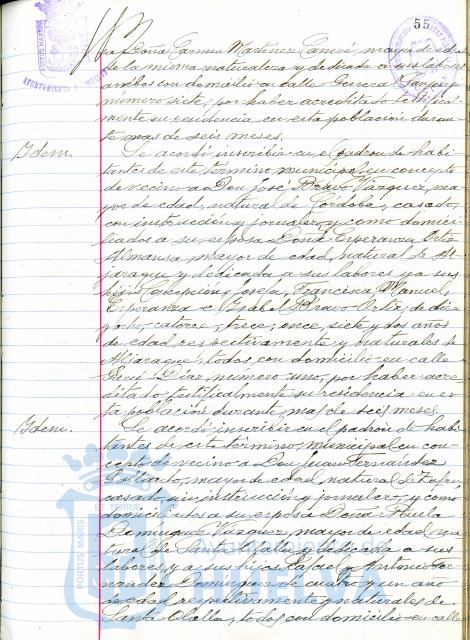 55
AYUNTAMIENTO
Doña Carmen Martínez mayor de edad
de la misma naturaleza y dedicada a sus labores
ambos con domicilio en calle
número siete, por haber acreditado testifical
mente su residencia en esta población duran
te mas de seis meses.
Idem.
Se acordó inscribir en el padrón de habi
tantes de este término municipal, en concepto
de vecino a Don José Bravo Vázquez, ma
yor de edad, natural de Córdoba, casado,
con instrucción y jornalero, y como domici
liados a su esposa Doña Esperanza Ortiz
Almansa, mayor de edad, natural de Al
jaraque, y dedicada a sus labores y a sus
hijos Concepción, Josefa, Francisca, Manuel,
Esperanza e Isabel Bravo Ortiz, de diez
y ocho, catorce, trece, once, siete y dos años
de edad respectivamente y naturales de
Aljaraque, todos con domicilio en calle
Díaz número uno, por haber acre
ditado testificalmente su residencia en es
ta población durante mas de seis meses.
Idem.
Se acordó inscribir en el padrón de habi
tantes de este término municipal en con
cepto de vecino a Don Juan Fernández
Gallardo, mayor de edad, natural de
casado, sin instrucción y jornalero, y como
domiciliados a su esposa Doña Paula
Domínguez Vázquez, mayor de edad, na
tural de Santa Olalla y dedicada a sus
labores, y a sus hijos Rafael y Antonio Fer
nández Domínguez de cuatro y un año
de edad respectivamente y naturales de
Santa Olalla, todos con domicilio en calle
PORTUS MARIS
Ayuntamiento de
HUELVA